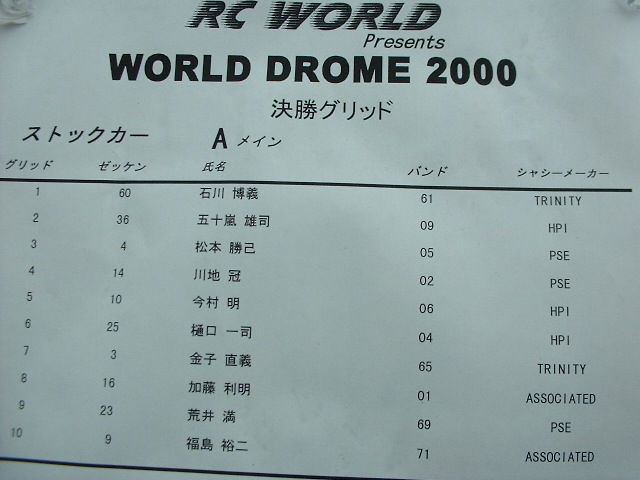 RC WORLD
Presents
WORLD DROME 2000
決勝グリッド
ストックカー A メイン
グリッド ゼッケン 氏名 バンド シャシーメーカー
1 60 石川 博義 61 TRINITY
2 36 五十嵐 雄司 09 HPI
3 4 松本 勝己 05 PSE
4 14 川地 冠 02 PSE
5 10 今村 明 06 HPI
6 25 樋口 一司 04 HPI
7 3 金子 直義 65 TRINITY
8 16 加藤 利明 01 ASSOCIATED
9 23 荒井 満 69 PSE
10 9 福島 裕二 71 ASSOCIATED